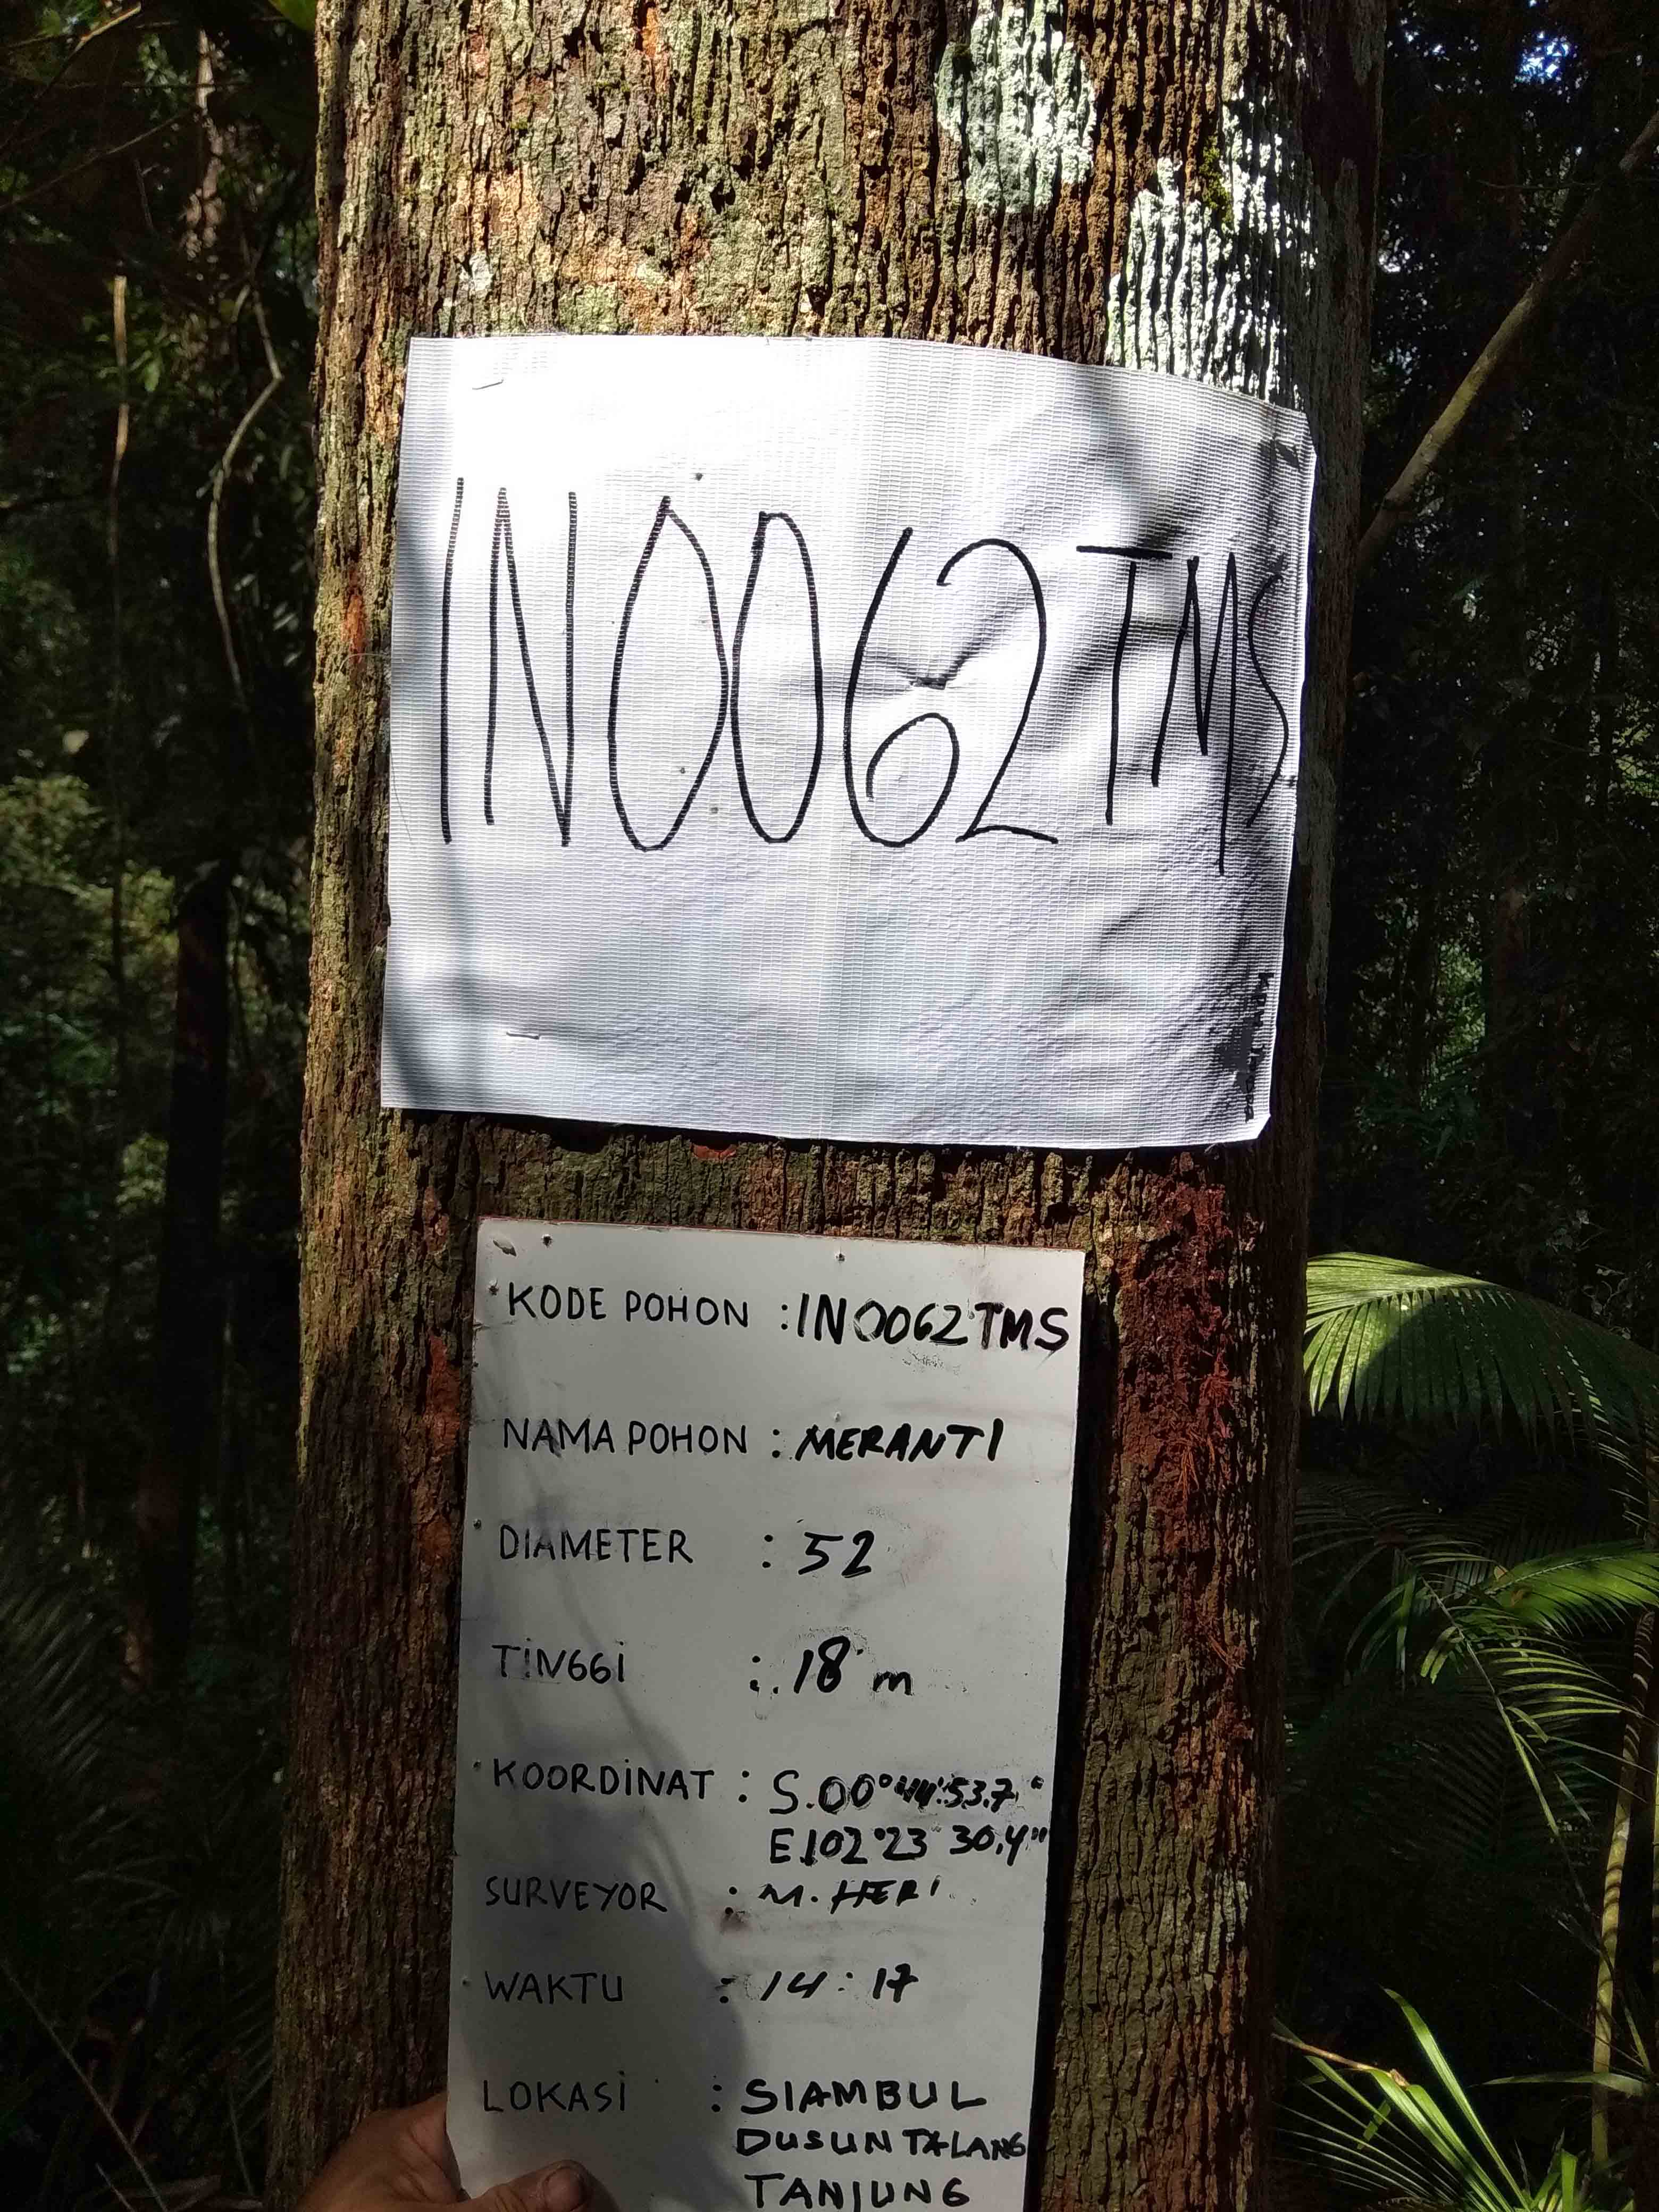 IN0062TMS
KODE POHON : IN0062TMS
NAMA POHON : MERANTI
DIAMETER : 52
TINGGI : 18 m
KOORDINAT : S.00°44'.53.7"
E.102°23 30.4"
SURVEYOR : M. HERI
WAKTU : 14:17
LOKASI : SIAMBUL
DUSUN TALANG
TANJUNG